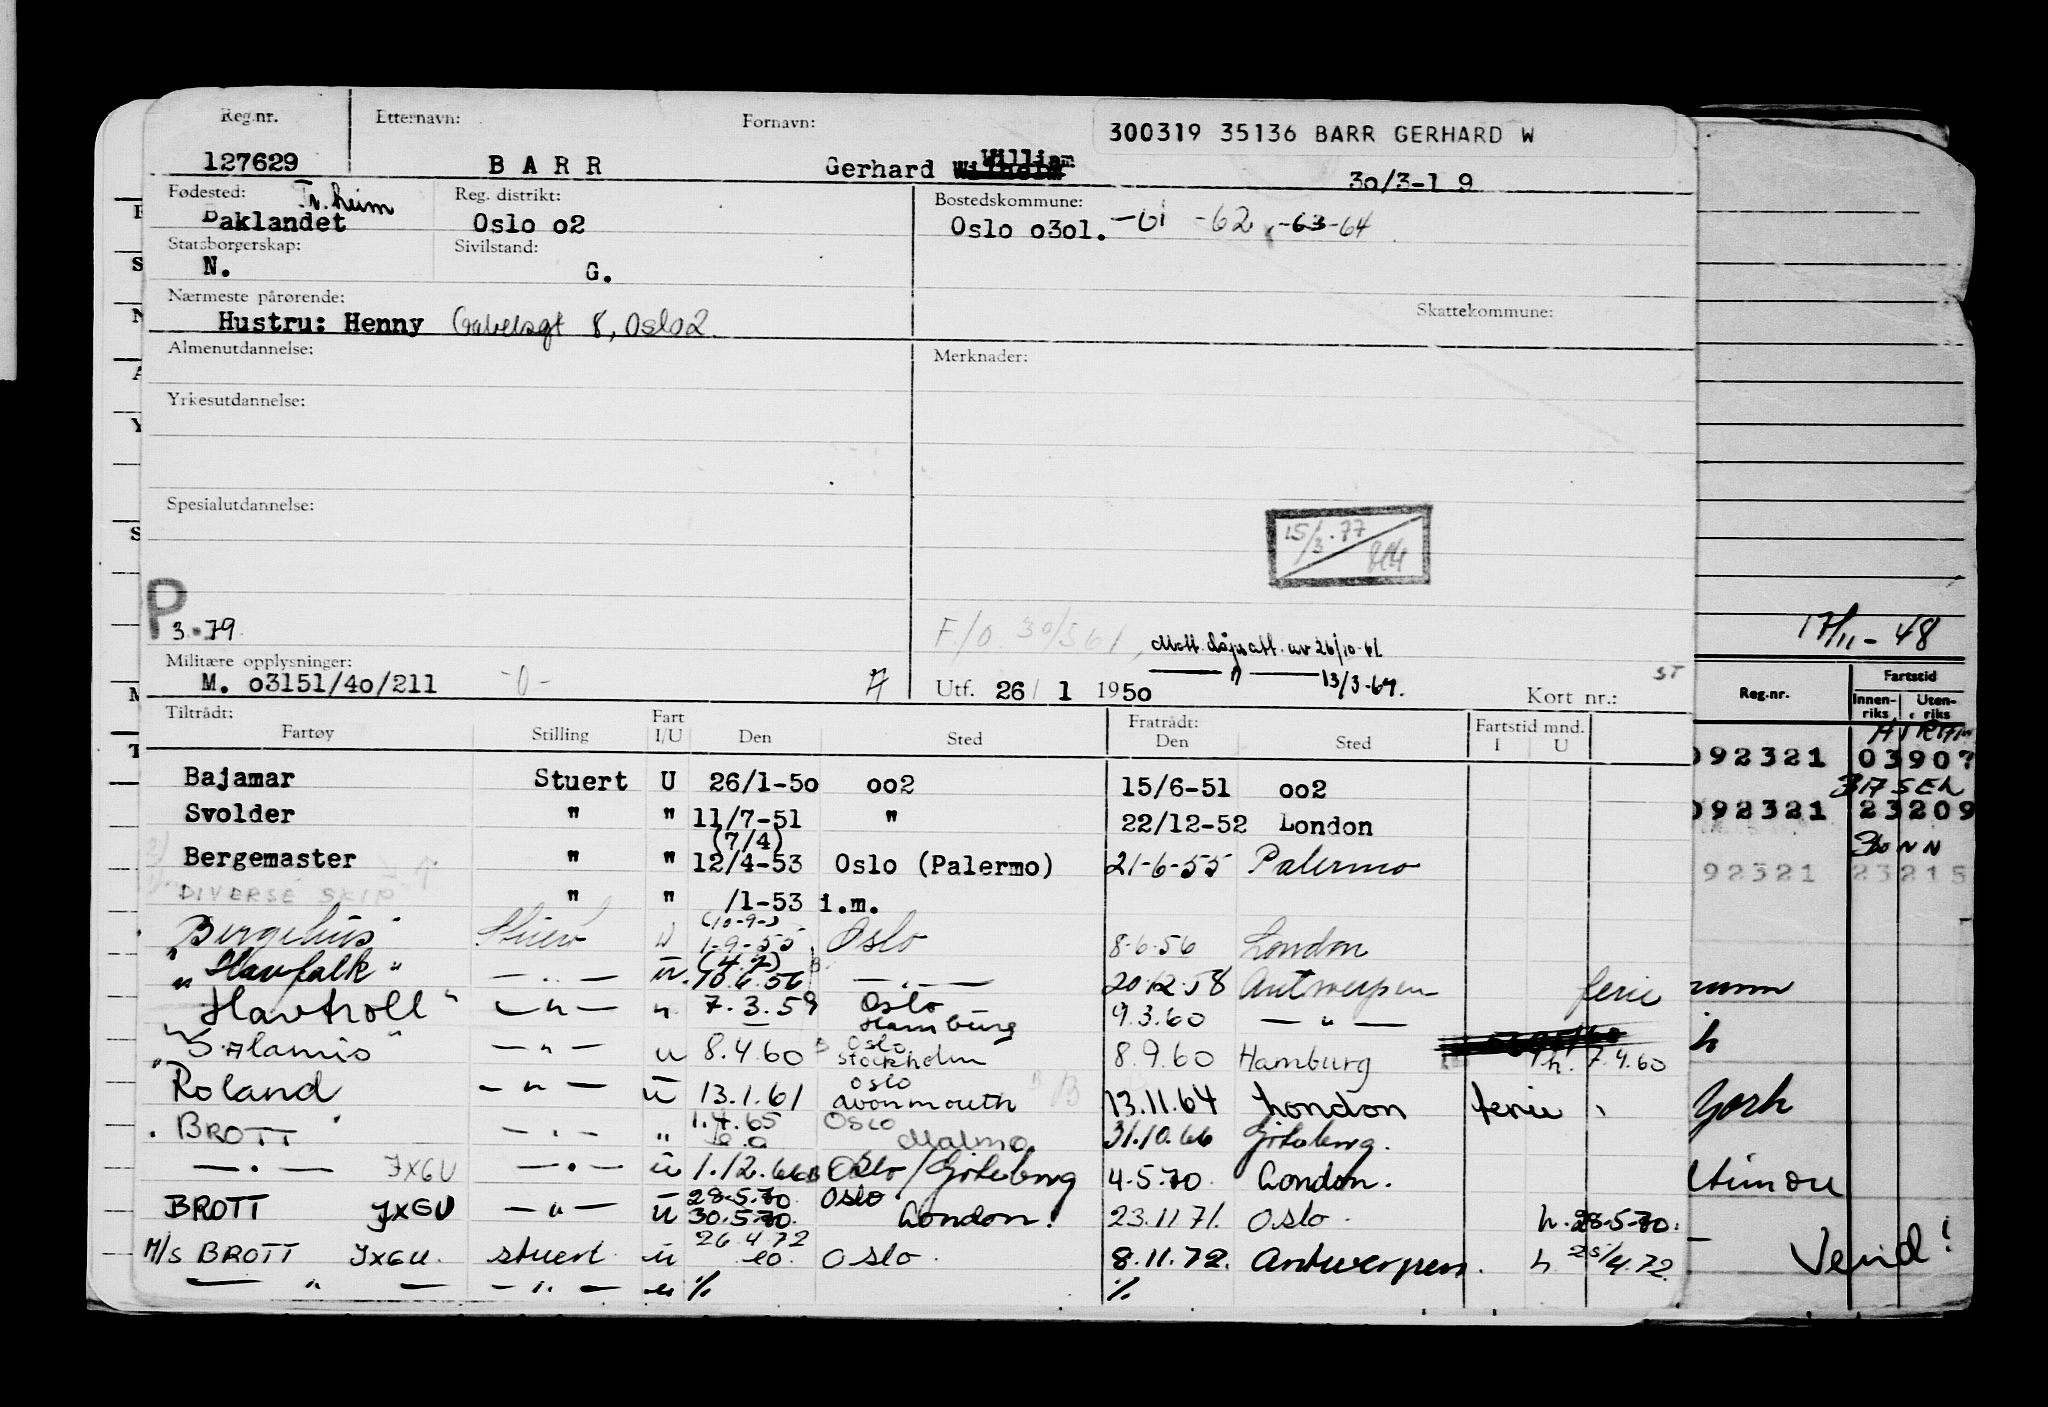 Reg.nr. Etternavn: Fornavn: 300319 35136 BARR GERHARD W
127629 BARR Gerhard Wilhelm William 30/3-19
Fødested: Tr.heim Reg. distrikt: Bostedskommune:
Baklandet Oslo o2 Oslo o3o1. -61 -62 -63-64
Statsborgerskap: Sivilstand:
N. G.
Nærmeste pårørende: Skattekommune:
Hustru: Henny Gabelsgt 8, Oslo 2.
Almenutdannelse: Merknader:
Yrkesutdannelse:
Spesialutdannelse:
15/3.77
P
3.79. F/O 30/5 61, Mott. av 26/10-61
17/11-48
Militære opplysninger: 13/3-64.
M. o3151/4o/211 -0- Utf. 26/1 1950 Kort nr.: ST
Reg.nr. Fartstid
Innen-riks Uten-riks
Tiltrådt: Fart Fratrådt: Fartstid mnd.
Fartøy Stilling I/U Den Sted Den Sted I U
092321 0390?
Bajamar Stuert U 26/1-50 oo2 15/6-51 oo2
092321 23209
Svolder " " 11/7-51 " 22/12-52 London
(7/4)
Bergemaster " " 12/4-53 Oslo (Palermo) 21-6-55 Palermo
92321 23215
DIVERSE SKIP " " /1-53 i.m.
Bergehus Stuert U 1-9-55 Oslo 8-6-56 London
"Havfalk" — . — u. 10.6.56 — . — 20.12.58 Antwerpen ferie
"Havtroll" — " — " 7.3.59 Oslo Hamburg 9.3.60 — " —
"Salamis" — " — u 8.4.60 B Oslo Stockholm 8.9.60 Hamburg h. 7.4.60
Roland — " — u 13.1.61 Oslo Avonmouth B 13.11.64 London ferie York
BROTT — . — " 1.4.65 Oslo Malmø 31.10.66 Göteborg.
— . — JXGU — . — u 1.12.66 B Oslo/Göteborg 4.5.70 London.
BROTT JXGU — " — u 28.5.70 30.5.70. Oslo London. 23.11 71. Oslo. h. 28-5-70.
M/S BROTT JXGU. stuert u 26 4 72 Oslo. 8.11.72. Antwerpen. h. 25/4.72.
— " — — " — u % %
Vend!